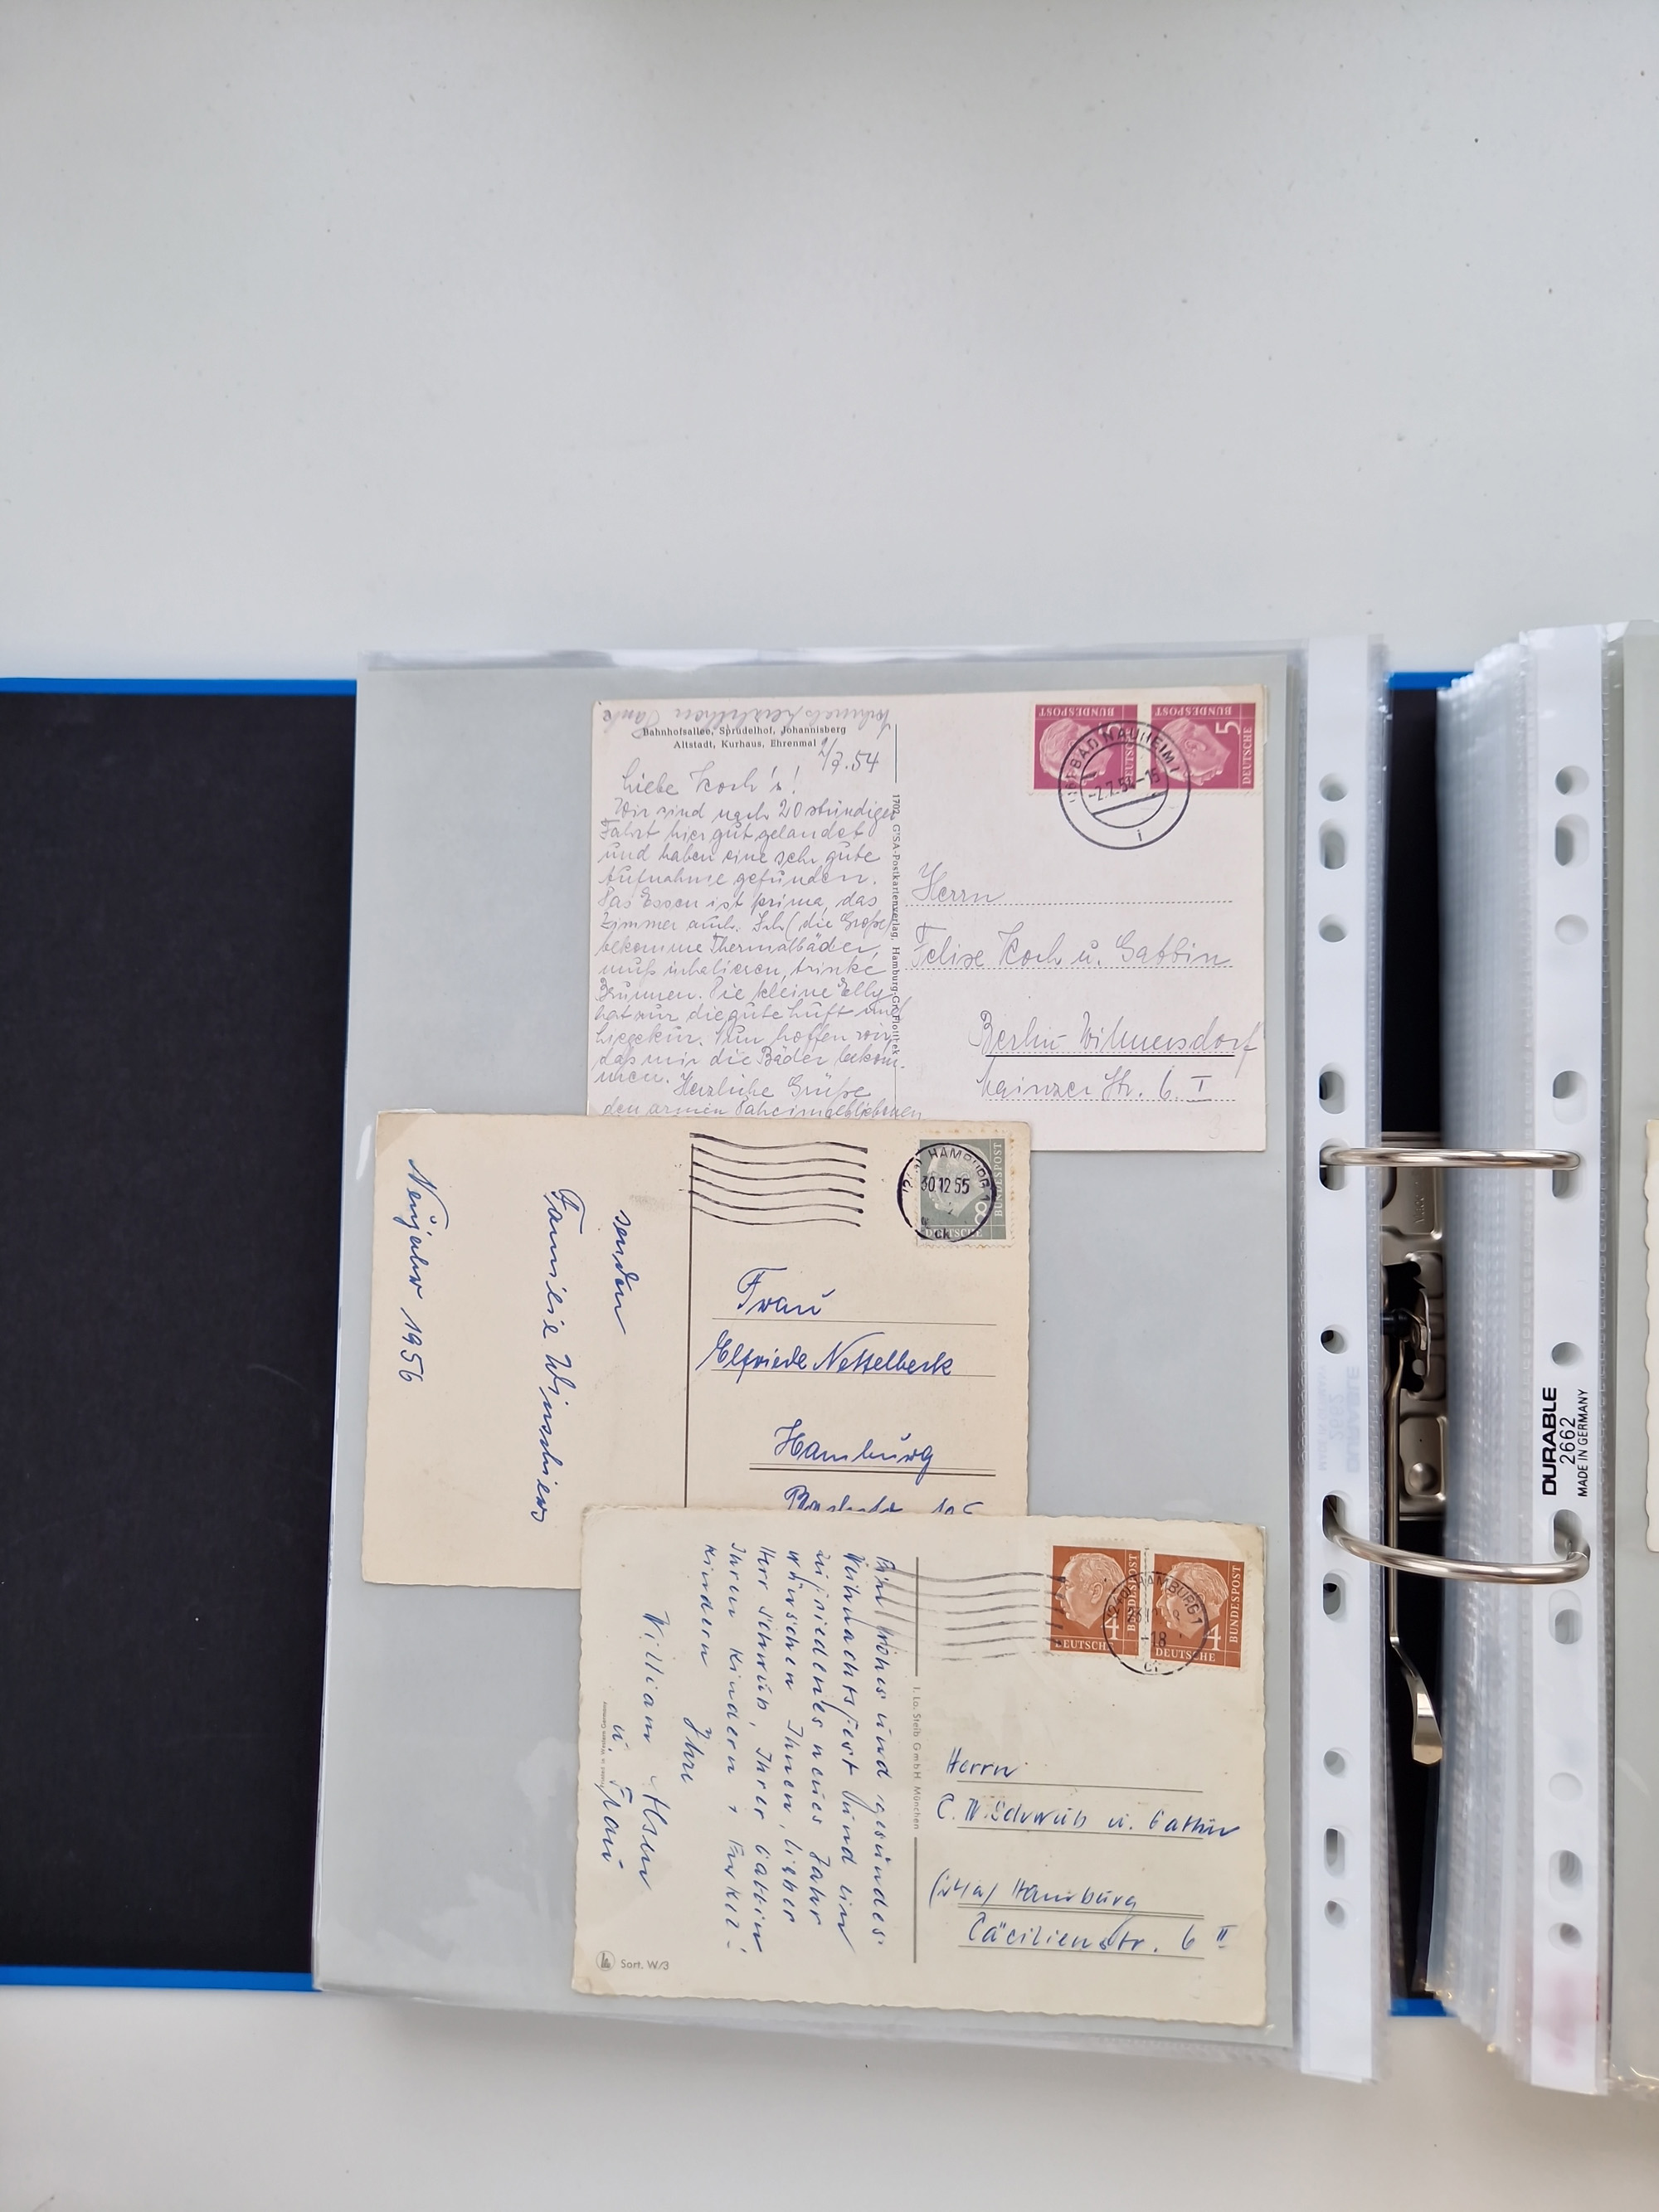 Bahnhofsallee, Sprudelhof, Johannisberg
Altstadt, Kurhaus, Ehrenmal
2/7.54
Liebe Koch's!
Wir sind nach 20 stündiger
Fahrt hier gut gelandet
und haben eine sehr gute
Aufnahme gefunden.
Das Essen ist prima, das
Zimmer auch. Ich (die Große)
bekomme Thermalbäder,
muß inhalieren, trinke
Brunnen. Die kleine Elly
hat nur die gute Luft und
Liegekur. Nun hoffen wir,
daß mir die Bäder bekom-
men. Herzliche Grüße
den armen Daheimgebliebenen
1702 Hamburg
DEUTSCHE BUNDESPOST 5
DEUTSCHE BUNDESPOST 5
BAD NAUHEIM 1
-2.7.54-15
i
Herrn
Felix Koch u. Gattin
Berlin-Wilmersdorf
Mainzer Str. 6 I
HAMBURG 1
30 12 55
ck
DEUTSCHE BUNDESPOST 8
Frau
Elfriede Nettelbeck
Hamburg
senden
Familie
Neujahr 1956
DEUTSCHE BUNDESPOST 4
DEUTSCHE BUNDESPOST 4
HAMBURG 1
-18
Herrn
u. Gattin
(24a) Hamburg
Cäcilienstr. 6 II
Ein frohes und gesundes
Weihnachtsfest und ein
zufriedenes neues Jahr
wünschen Ihnen, lieber
Herr Ihrer Gattin
Ihren Kindern u. Enkel-
kindern Ihre
William
u. Frau
I. Lo. Steib GmbH München
Sort. W/3
DURABLE
2662
MADE IN GERMANY